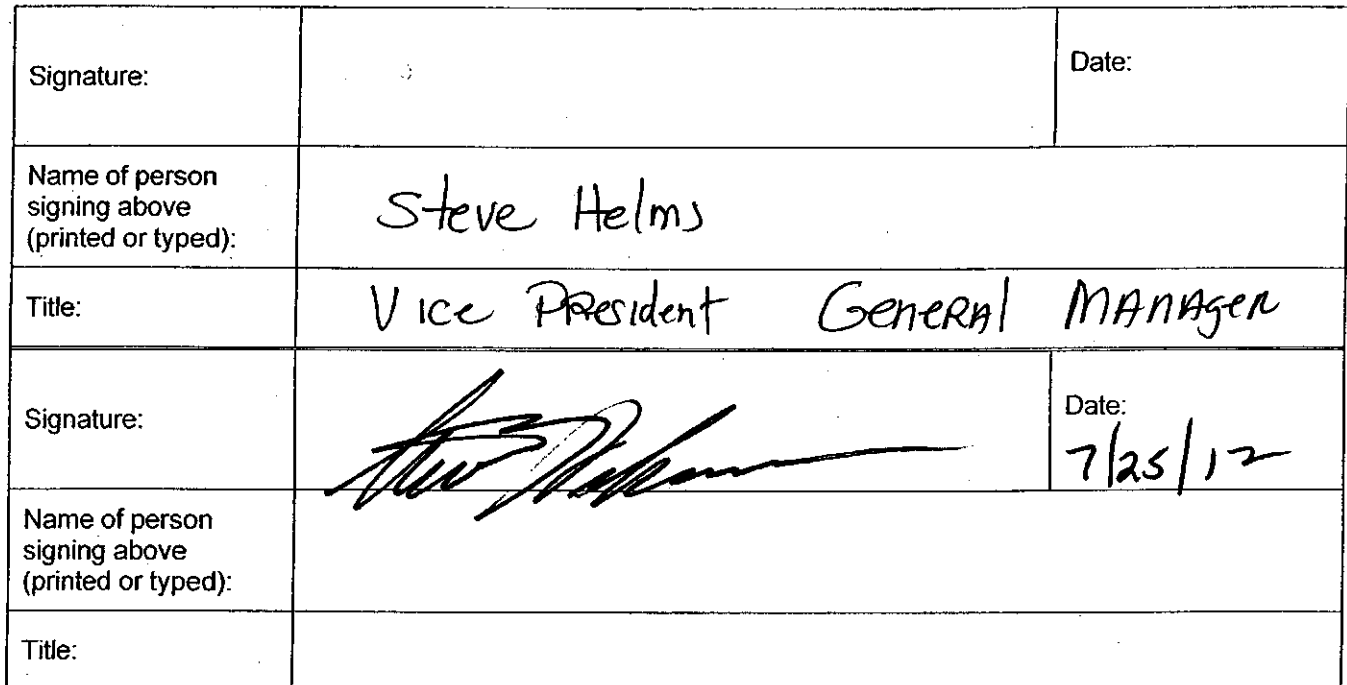 Signature:
Date:
Name of person
signing above
(printed or typed):
Steve Helms
Title:
Vice President General Manager
Signature:
Date:
7/25/12
Name of person
signing above
(printed or typed):
Title: